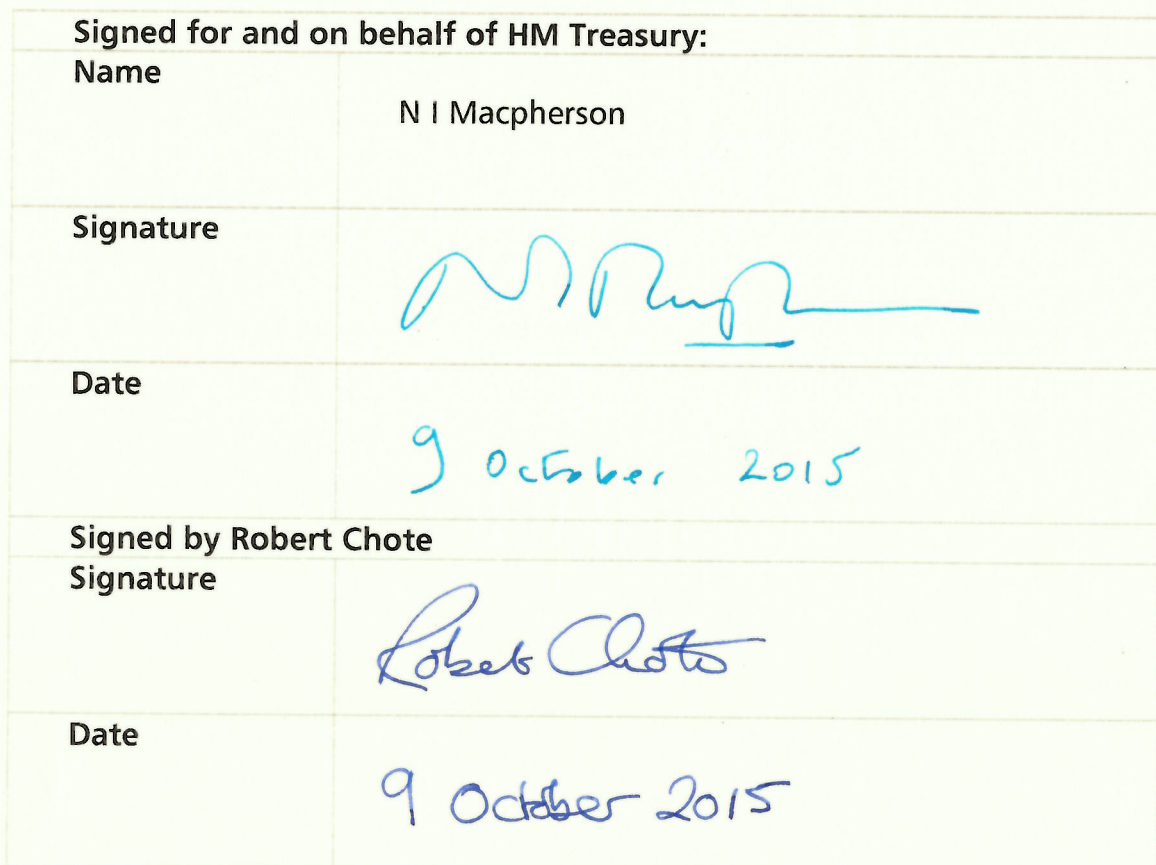 Signed for and on behalf of HM Treasury:
Name
N I Macpherson
Signature
Date
9 October 2015
Signed by Robert Chote
Signature
Robert Chote
Date
9 October 2015